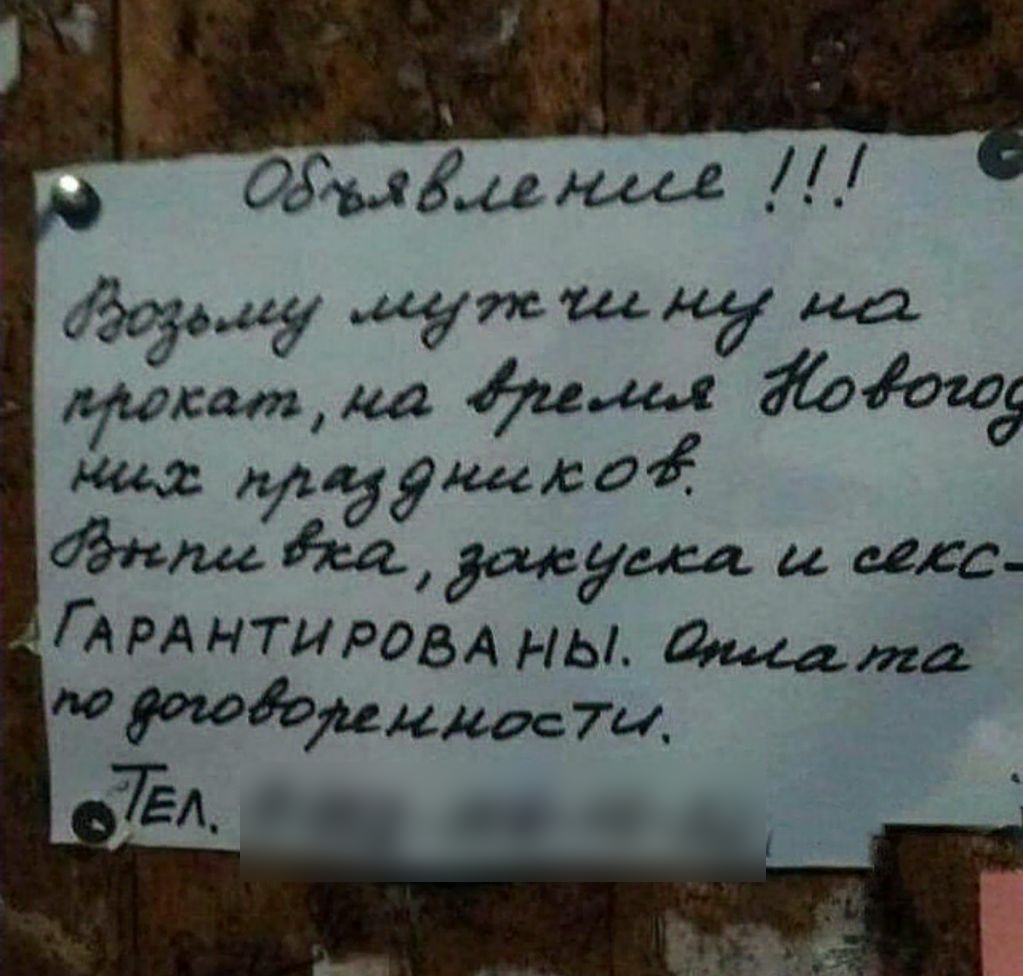 Объявление !!!
Возьму мужчину на
прокат, на время Новогод
них праздников.
Выпивка, закуска и секс-
ГАРАНТИРОВАНЫ. Оплата
по договоренности.
ТЕЛ.